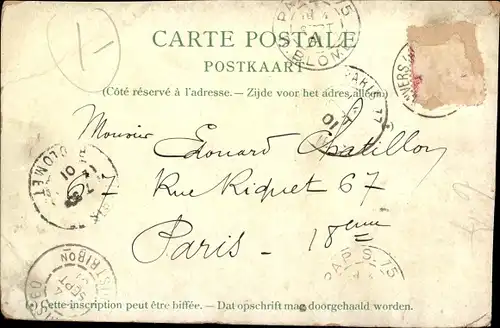 1-
PARIS 75
CARTE POSTALE
POSTKAART
(Côté réservé à l'adresse. — Zijde voor het adres alleen)
PARIS 77
Monsieur Edouard Chatillon
67 Rue Riquet 67
Paris - 18eme
PARIS 75
DISTRIBON
SEPT
(*) Cette inscription peut être biffée. — Dat opschrift mag doorgehaald worden.